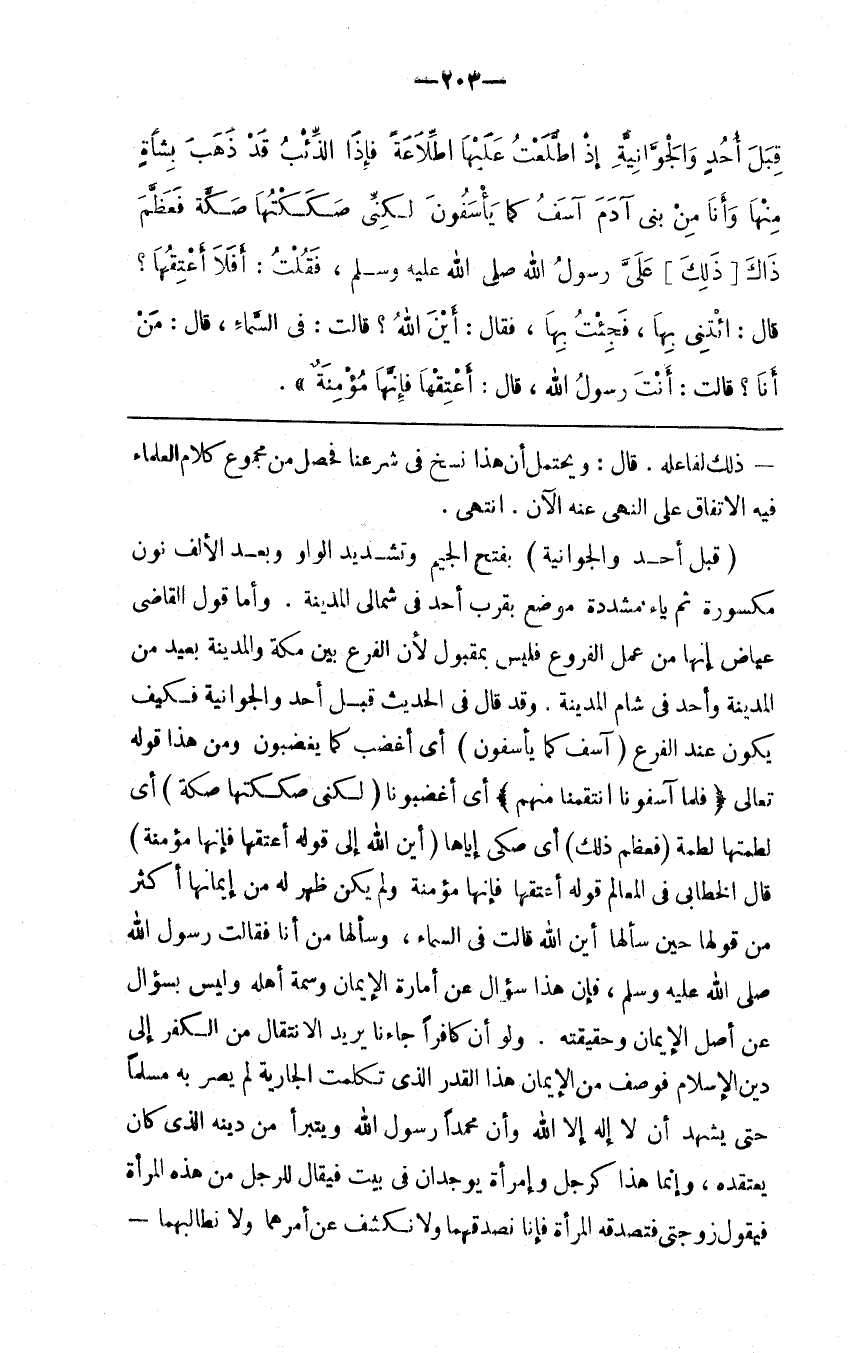 —٢٠٣—
قِبَلَ أُحُدٍ وَالْجَوَّانِيَّةِ إِذْ اطَّلَعْتُ عَلَيْهَا اطِّلَاعَةً فَإِذَا الذِّئْبُ قَدْ ذَهَبَ بِشَاةٍ
مِنْهَا وَأَنَا مِنْ بنى آدَمَ آسَفُ كما يَأْسَفُونَ لكِنِّى صَكَكْتُهَا صَكَّة فَعَظَّمَ
ذَاكَ [ ذَلِكَ ] عَلَىَّ رسولُ الله صلى الله عليه وسلم ، فَقُلْتُ : أَفَلاَ أُعْتِقُهَا ؟
قال : ائْتِنِى بِهَا ، فَجِئْتُ بِهَا ، فقال : أَيْنَ اللهُ ؟ قالت : فى السَّماءِ ، قال : مَنْ
أَنَا ؟ قالت : أَنْتَ رسولُ الله ، قال : أَعْتِقْهَا فإِنَّهَا مُؤْمِنَةٌ » .
— ذلك لفاعله . قال : ويحتمل أن هذا نسخ فى شرعنا فحصل من مجموع كلام العلماء
فيه الاتفاق على النهى عنه الآن . انتهى .
( قبل أحد والجوانية ) بفتح الجيم وتشديد الواو وبعد الألف نون
مكسورة ثم ياء مشددة موضع بقرب أحد فى شمالى المدينة . وأما قول القاضى
عياض إنها من عمل الفروع فليس بمقبول لأن الفرع بين مكة والمدينة بعيد من
المدينة وأحد فى شام المدينة . وقد قال فى الحديث قبل أحد والجوانية فكيف
يكون عند الفرع ( آسف كما يأسفون ) أى أغضب كما يغضبون ومن هذا قوله
تعالى ﴿ فلما آسفونا انتقمنا منهم ﴾ أى أغضبونا ( لكنى صككتها صكة ) أى
لطمتها لطمة ( فعظم ذلك ) أى صكى إياها ( أين الله إلى قوله أعتقها فإنها مؤمنة )
قال الخطابى فى المعالم قوله أعتقها فإنها مؤمنة ولم يكن ظهر له من إيمانها أكثر
من قولها حين سألها أين الله قالت فى السماء ، وسألها من أنا فقالت رسول الله
صلى الله عليه وسلم ، فإن هذا سؤال عن أمارة الإيمان وسمة أهله وليس بسؤال
عن أصل الإيمان وحقيقته . ولو أن كافراً جاءنا يريد الانتقال من الكفر إلى
دين الإسلام فوصف من الإيمان هذا القدر الذى تكلمت الجارية لم يصر به مسلماً
حتى يشهد أن لا إله إلا الله وأن محمداً رسول الله ويتبرأ من دينه الذى كان
يعتقده ، وإنما هذا كرجل وإمرأة يوجدان فى بيت فيقال للرجل من هذه المرأة
فيقول زوجتى فتصدقه المرأة فإنا نصدقهما ولا نكشف عن أمرهما ولا نطالبهما —